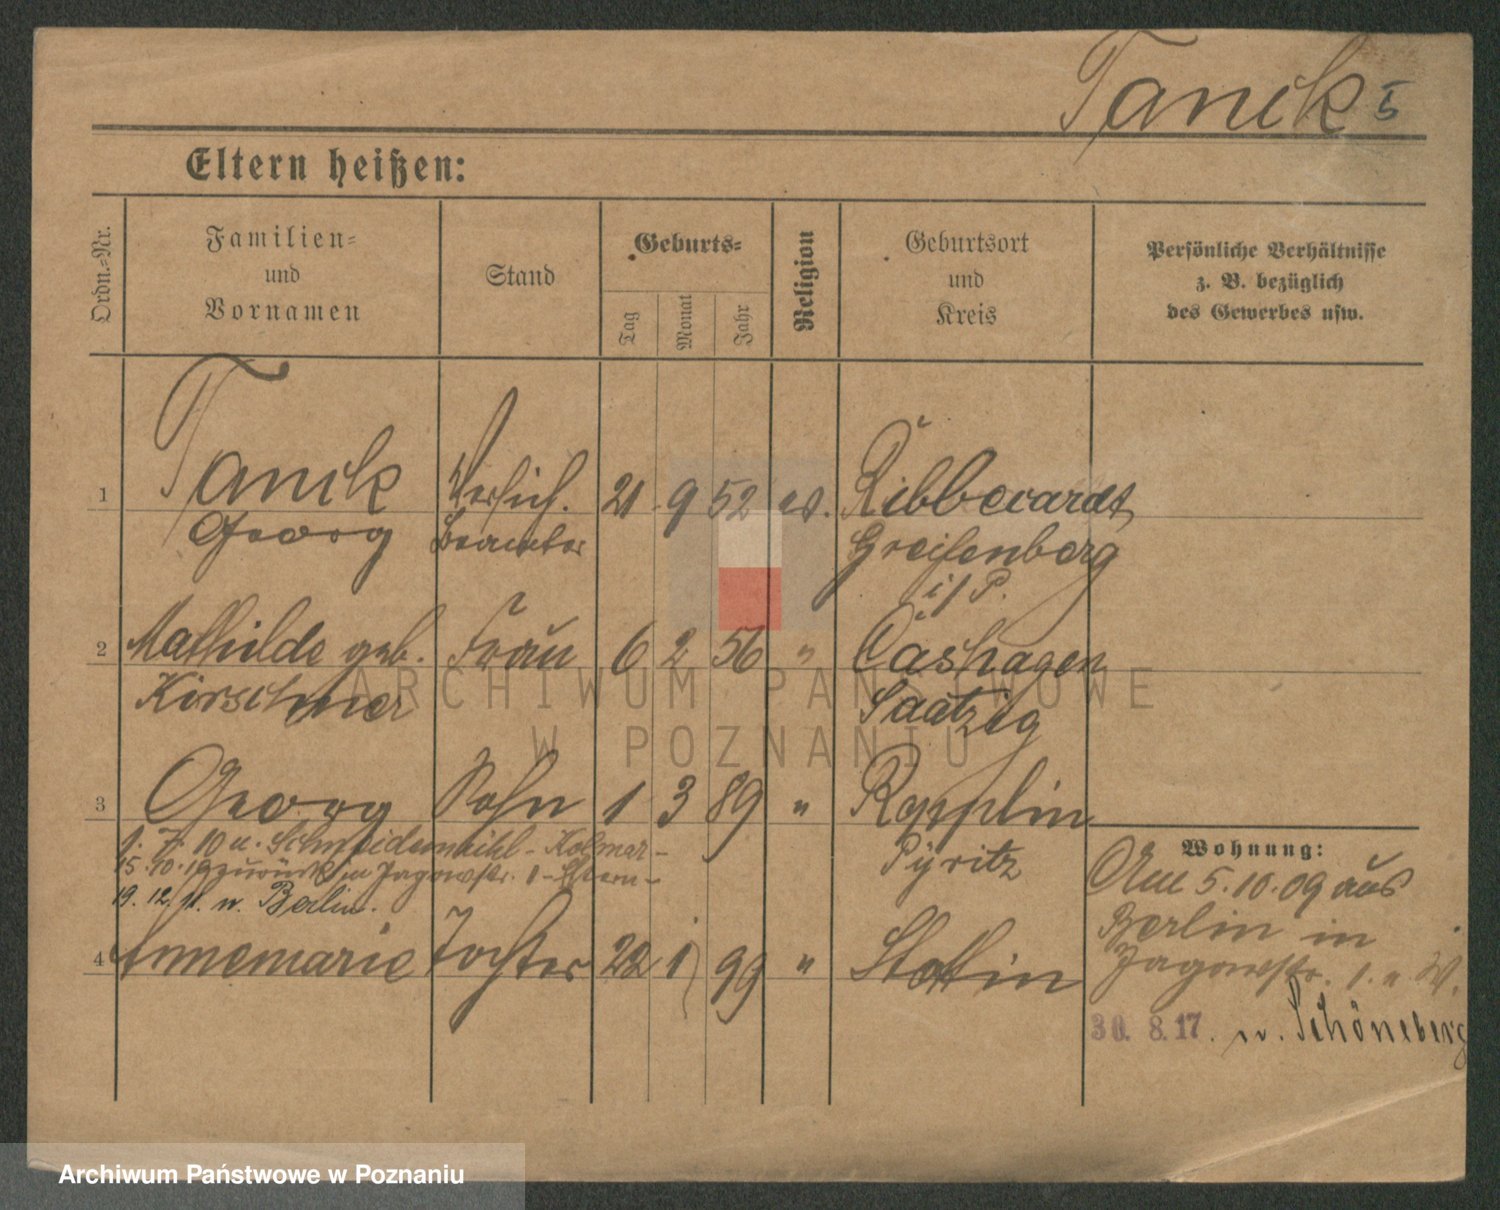 Tanck 5
Eltern heißen:
Ordn.=Nr.
Familien=
und
Vornamen
Stand
Geburts=
Tag
Monat
Jahr
Religion
Geburtsort
und
Kreis
Persönliche Verhältnisse
z. B. bezüglich
des Gewerbes usw.
1 Tanck Versich. 21 9 52 ev. Ribbekardt
Georg Beamter Greifenberg
i/P.
2 Mathilde geb. Frau 6 2 56 " Cashagen
Kirschner Saatzig
3 Georg Sohn 1 3 89 "
Pyritz
1. 7. 10 n. Schneidemühl - Kolmar -
15. 10. 10 zurück in Jagowstr. 1 - Eltern -
19. 12. 11. n. Berlin.
4 Annemarie Tochter 22 1 99 " Stettin
Wohnung:
Am 5.10.09 aus
Berlin in
Jagowstr. 1. " W.
30. 8. 17. n. Schöneberg
ARCHIWUM PAŃSTWOWE
W POZNANIU
Archiwum Państwowe w Poznaniu